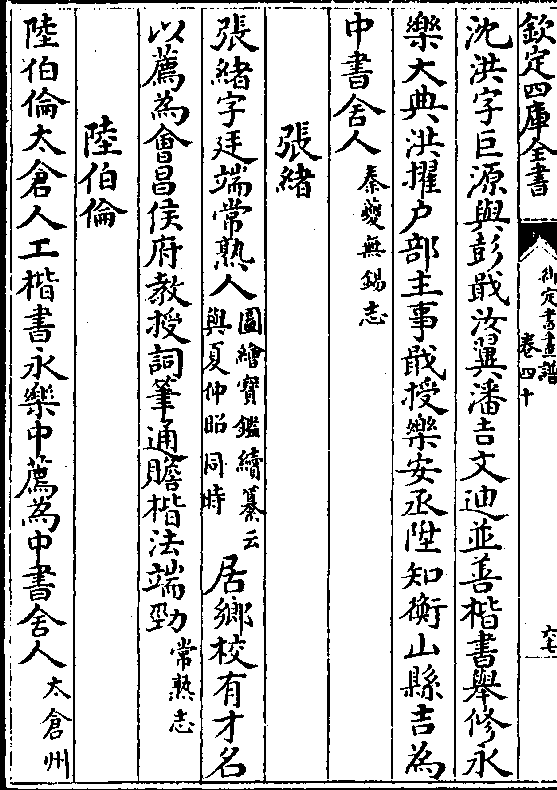 欽定四庫全書
御定書畫譜
卷四十
六七
沈洪字巨源與彭戩汝翼潘吉文迪並善楷書舉修永
樂大典洪擢户部主事戩授樂安丞陞知衡山縣吉為
中書舍人秦夔無錫志
張緒
張緒字廷端常熟人圖繪寶鑑續纂云與夏仲昭同時居鄉校有才名
以薦為會昌侯府教授詞筆通贍楷法端勁常熟志
陸伯倫
陸伯倫太倉人工楷書永樂中薦為中書舍人太倉州